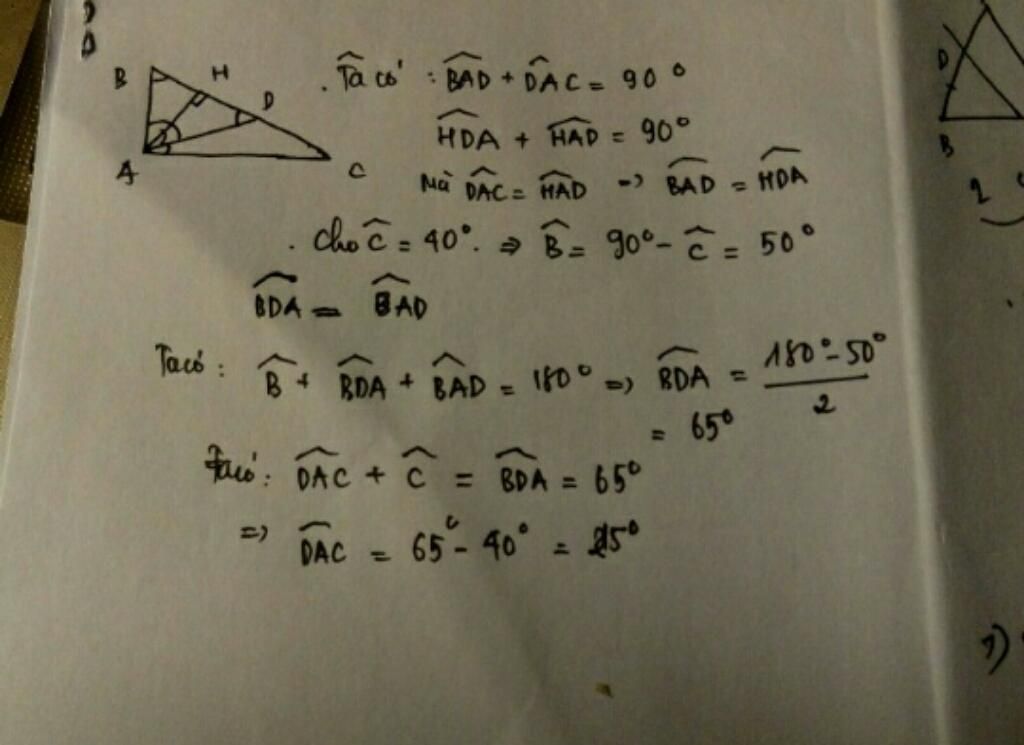 B H D
A C
. Ta có : B̂AD + D̂AC = 90°
ĤDA + ĤAD = 90°
Mà D̂AC = ĤAD => B̂AD = ĤDA
. Cho Ĉ = 40°. => B̂ = 90° - Ĉ = 50°
B̂DA = B̂AD
Ta có : B̂ + B̂DA + B̂AD = 180° => B̂DA = (180° - 50°)/2
= 65°
Ta có : D̂AC + Ĉ = B̂DA = 65°
=> D̂AC = 65° - 40° = 25°
D
B
2
1)